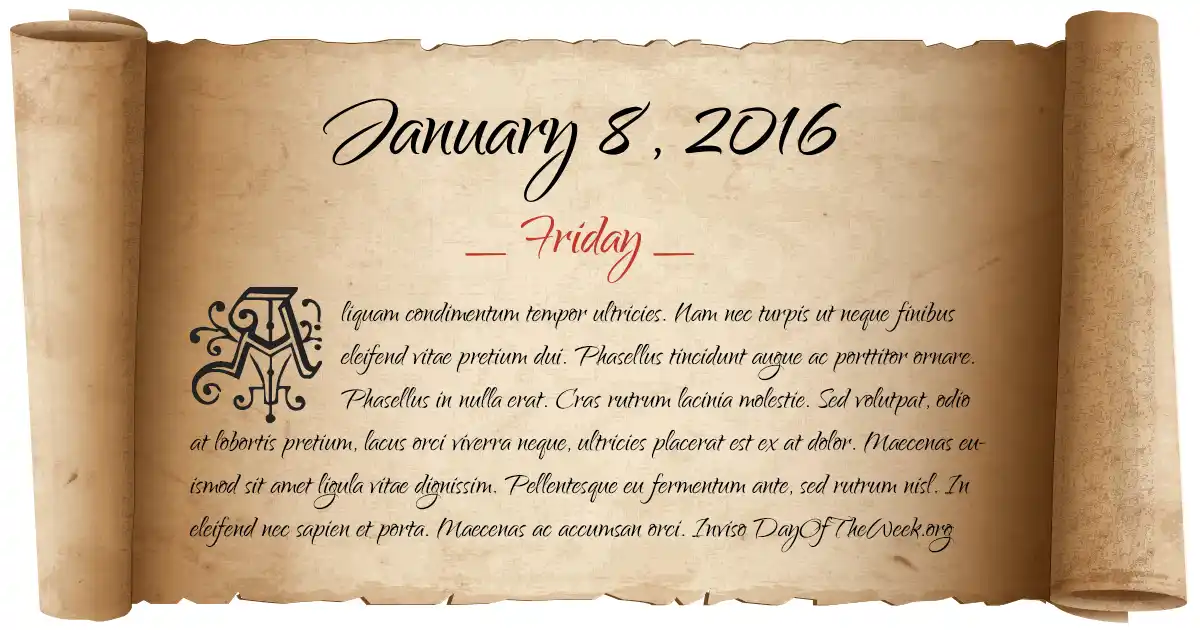 January 8, 2016
_ Friday _
Aliquam condimentum tempor ultricies. Nam nec turpis ut neque finibus
eleifend vitae pretium dui. Phasellus tincidunt augue ac porttitor ornare.
Phasellus in nulla erat. Cras rutrum lacinia molestie. Sed volutpat, odio
at lobortis pretium, lacus orci viverra neque, ultricies placerat est ex at dolor. Maecenas eu-
ismod sit amet ligula vitae dignissim. Pellentesque eu fermentum ante, sed rutrum nisl. In
eleifend nec sapien et porta. Maecenas ac accumsan orci. Inviso DayOfTheWeek.org